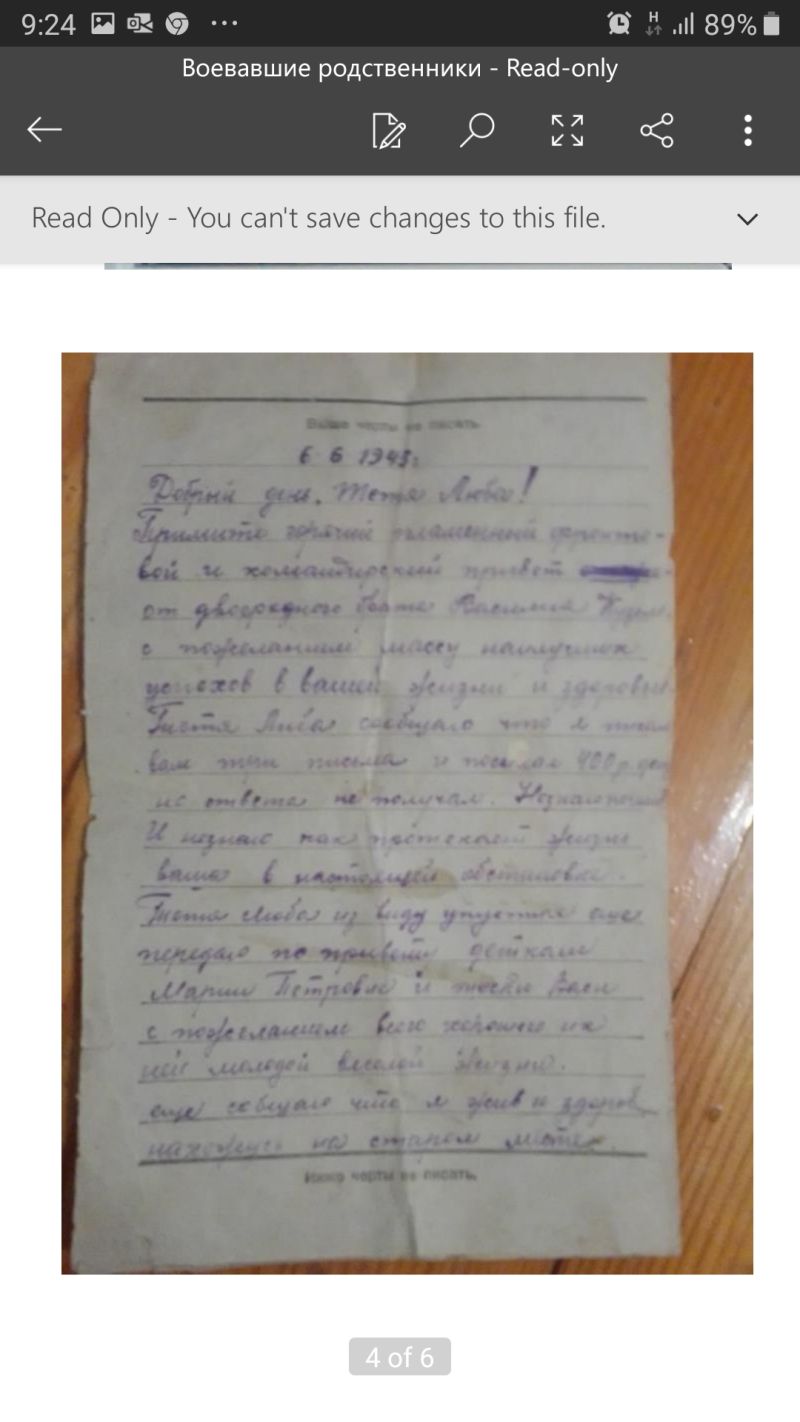 9:24
H
89%
Воевавшие родственники - Read-only
Read Only - You can't save changes to this file.
Выше черты не писать.
6 6 1943г
Добрый день, Тетя Люба!
Примите горячий пламенный фронто-
вой и командирский привет
от двоюродного брата Василия
с пожеланием массу наилучших
успехов в вашей жизни и здоровье
Тетя Люба сообщаю что я писал
вам три письма и послал 400 р.
но ответа не получал. Незнаю
И незнаю как протекает жизнь
ваша в настоящей обстановке.
Тетя Люба из виду упустил еще
передаю по привету деткам
Марии Петровне и Васи
с пожеланием всего хорошего их
ней молодой веселой жизни.
еще собщаю что я жив и здоров
нахожусь на старом месте.
Ниже черты не писать.
4 of 6